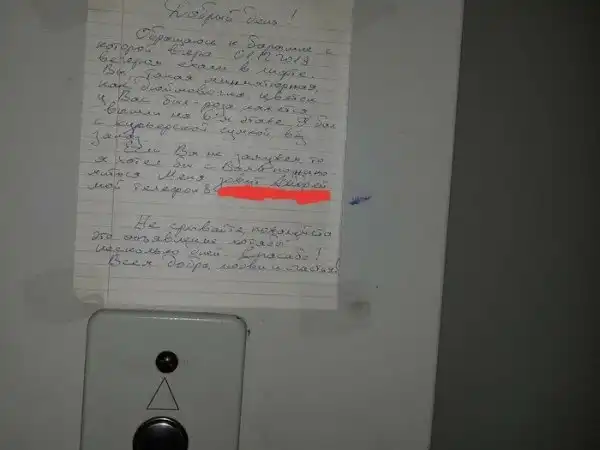 Добрый день!
Обращаюсь к барышне с
которой вчера 2019
вечером ехали в лифте.
Вы такая миниатюрная,
как цветок
у Вас роза
вышли на 6м этаже. Я был
с курьерской сумкой вёз
заказ.
Если Вы не замужем то
я хотел бы с Вами познако-
миться Меня зовут
мой телефон 8
Не срывайте пожалуйста
это объявление хотя бы
несколько дней. Спасибо!
Всем добра, любви и счастья!